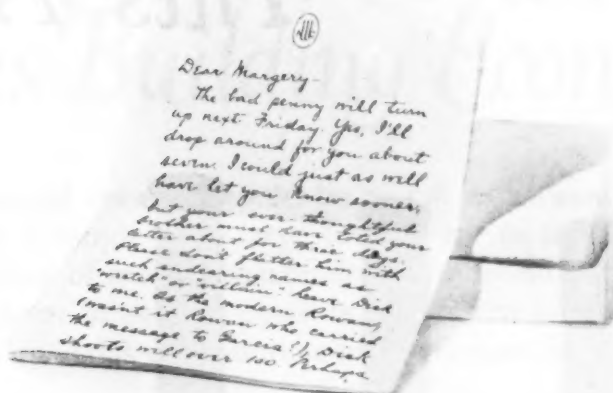 Dear Margery—
The bad penny will turn
up next Friday. Yes, I'll
drop around for you about
seven. I could just as well
have let you know sooner,
but your ever-thoughtful
brother must have toted your
letter about for three days.
Please don't flatter him with
such endearing names as
"wretch" or "villain." Leave Dick
to me. As the modern Rowan,
(wasn't it Rowan who carried
the message to Garcia?), Dick
shoots well over 100. Perhaps